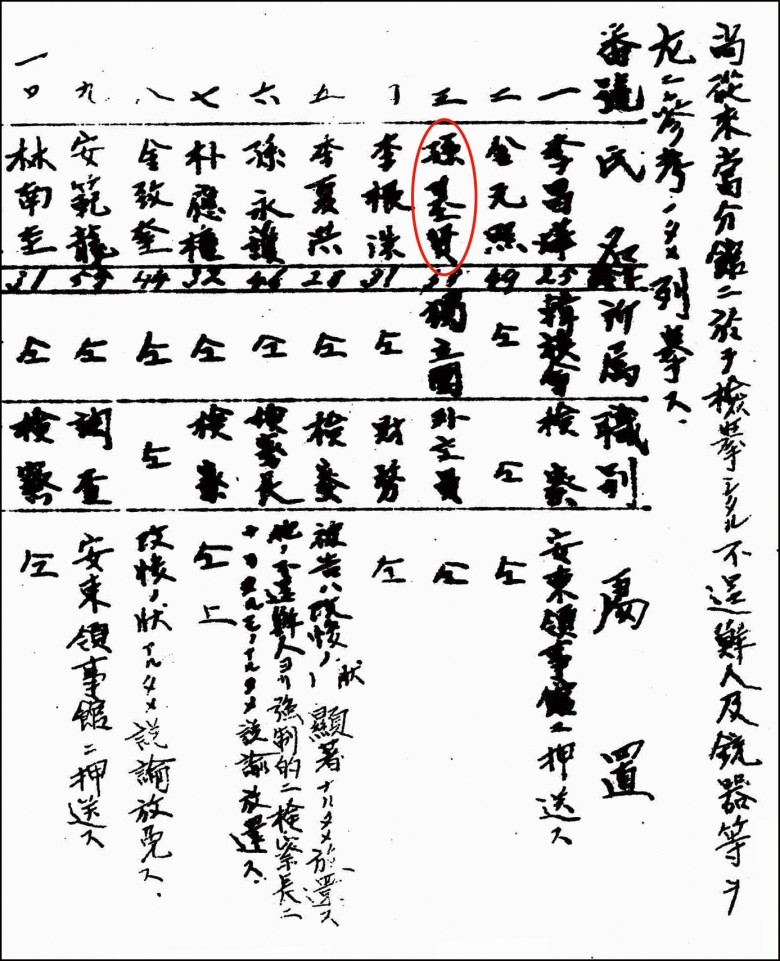 尚從来當分館ニ於テ檢擧シタル不逞鮮人及銃器等ヲ
左ニ参考ノタメ列擧ス、
番號 氏名 年齢 所属 職別 處置
一 李昌 25 韓族会 検察 安東領事館ニ押送ス
二 金元 49 仝 仝 仝
三 孫基賢 獨立團 外交員 仝
李根洙 31 仝 財務 仝
五 李夏洪 28 仝 検察 被告ハ改悛ノ状顯著ナルタメ放還ス
六 孫永護 46 仝 検察長 他ノ不逞鮮人ヨリ強制的ニ検察長ニ
ナリタルモノナルタメ説諭放還ス、
七 朴應 32 仝 検察 仝上
八 金致奎 44 仝 仝 改悛ノ状アルタメ説諭放免ス、
九 安範龍 仝 調査 安東領事館ニ押送ス
一〇 林南 31 仝 検察 仝